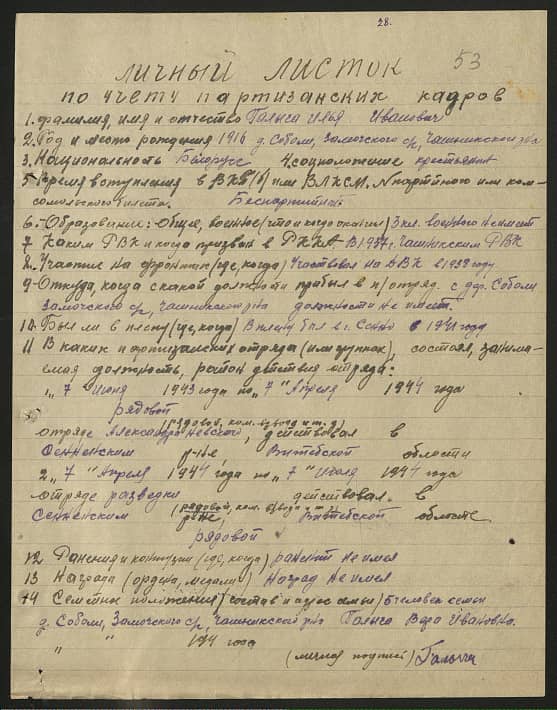 28.
53
ЛИЧНЫЙ ЛИСТОК
по учету партизанских кадров
1. фамилия, имя и отчество Галыга Илья Иванович
2. Год и место рождения 1916 д. Соболи, Замочского с/с, Чашникского р-на
3. Национальность Белорус 4. соцположение крестьянин
5. Время вступления в ВКП(б) или ВЛКСМ, № партийного или ком-
сомольского билета. Беспартийный
6. Образование: общее, военное (что и когда окончил) 3 кл. военного не имеет
7. Каким РВК и когда призван в РККА. В 1937, Чашникским РВК
8. Участие на фронтах (где, когда) Участвовал на ДВК в 1938 году
9. Откуда, когда с какой должности прибыл в п/отряд. с дер. Соболи
Замочского с/с, Чашникского р-на должности не имеет.
10. Был ли в плену (где, когда) В плену был в г. Сенно в 1941 году
11 В каких партизанских отрядах (или группах), состоял, занима-
емая должность, район действия отряда:
1„ 7 " Июня 1943 года по „ 7 " Апреля 1944 года
рядовой
(рядовой, ком. взвода и т. д)
отряде Александра Невского, действовал в
Сенненским р-не Витебской области
2„ 7 " Апреля 1944 года по „ 7 " Июля 1944 года
отряде разведки действовал в
(рядовой, ком. взвода и т. д)
Сенненским р-не, Витебской области
рядовой
12 Ранения и контузии (где, когда) ранений не имея
13 Награда (ордена, медали) Наград не имея
14 Семейное положение (состав и адрес семьи) 5 человек семьи
д. Соболи, Замочского с/с, Чашникской р-на Галыга Вера Ивановна.
„ " 194 года
(личная подпись)